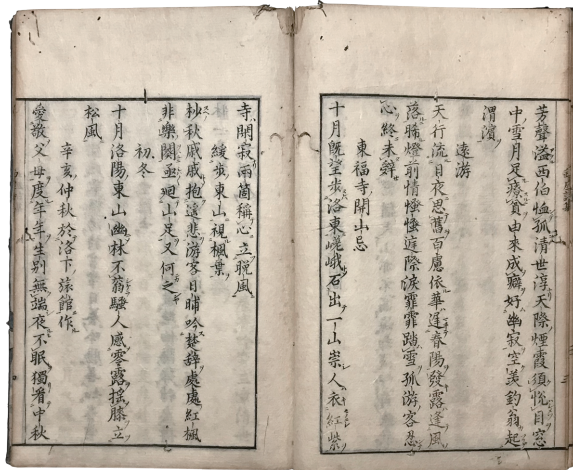 芳聲溢西伯恤孤清世淳天際煙霞須悅目窓
中雪月足療貧由來成癖好幽寂空羨釣翁起
渭濱
遠游
天行流日夜思舊百慮依華逢春陽發露逢風
落晞燈前情慅慅庭際淚霏霏踏雪孤游客忍
心終未歸
東福寺開山忌
十月既望步洛東嵯峨石出一山崇人衣紅紫
寺閑寂兩箇稱心立晚風
緩步東山視楓葉
杪秋戚戚抱遠悲游客日晡吟楚辭處處紅楓
非樂園亟廻山足又何之
初冬
十月洛陽東山幽林不蓊騷人感零露搖膝立
松風
辛亥仲秋於洛下旅館作
愛敬父母度年年生別無端夜不眠獨看中秋